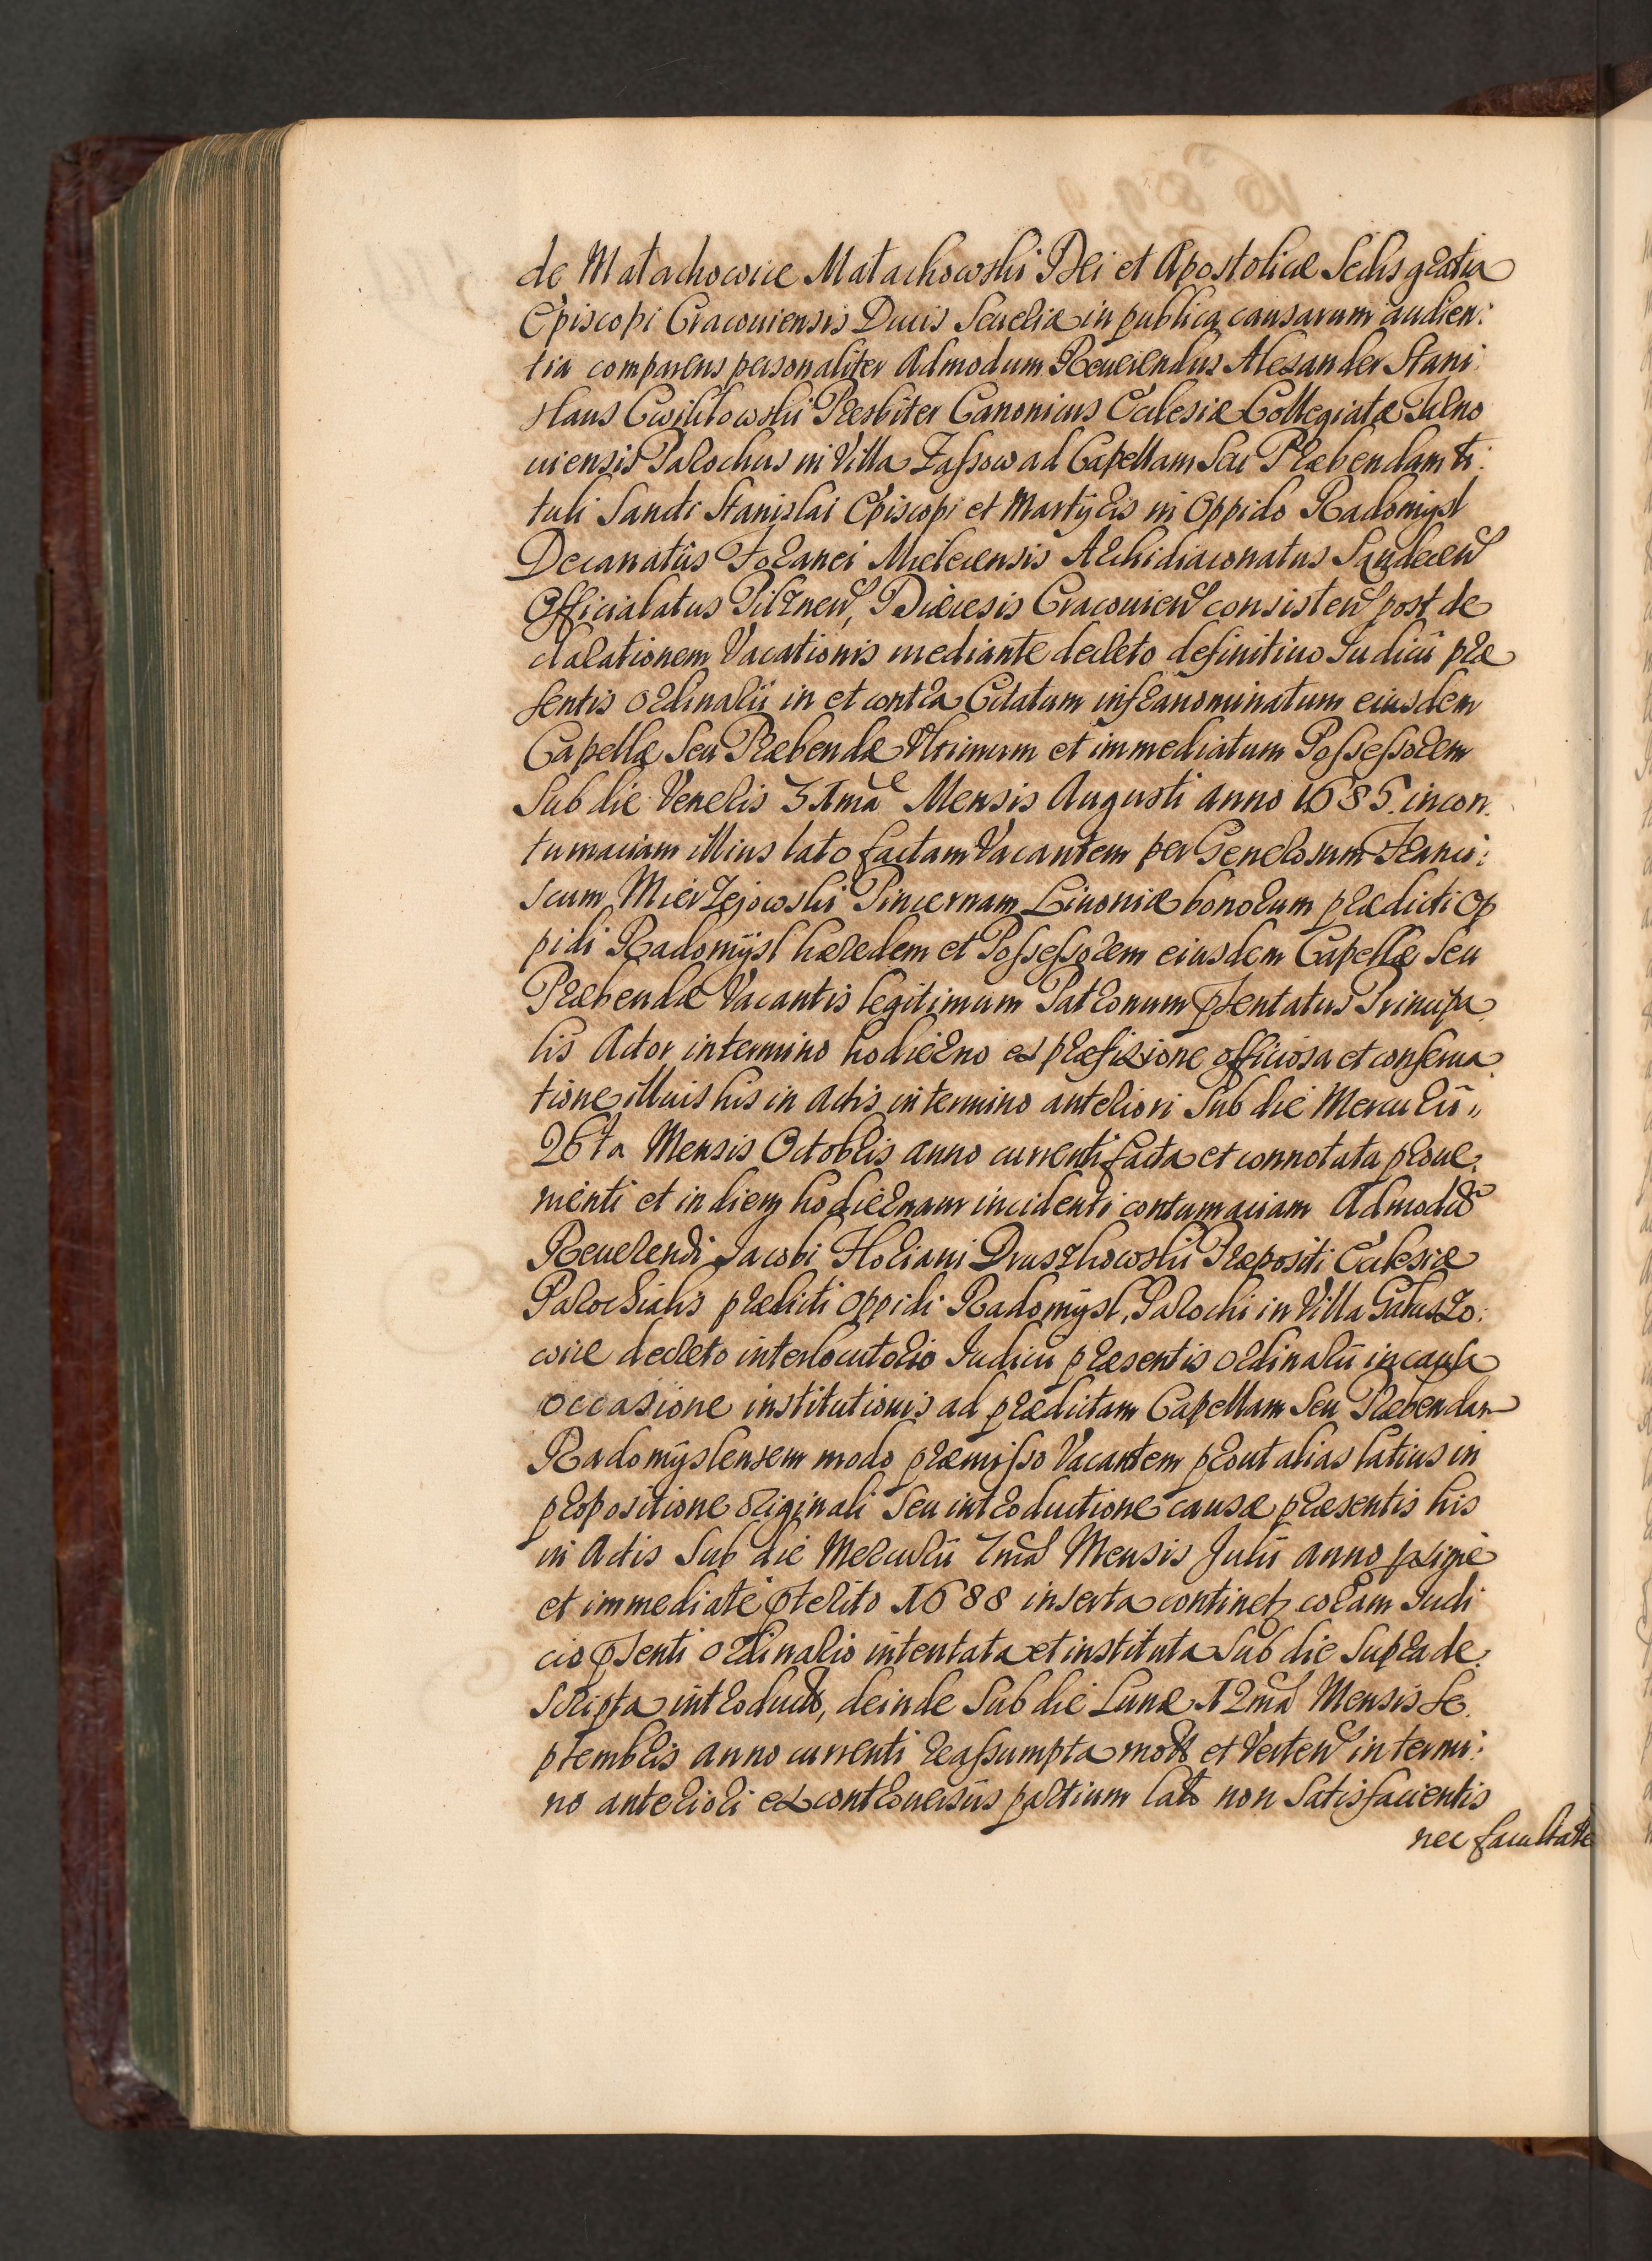 de Małachowice Małachowski Dei et Apostolicæ Sedis gratia
Episcopi Cracouiensis Ducis Seueriæ in publica causarum audien:
tia comparens personaliter Admodum Reuerendus Alexander Stani:
slaus Presbiter Canonicus Ecclesiæ Collegiatæ Tarno
uiensis Parochus in Villa Zassow ad Capellam Seu Præbendam ti:
tuli Sancti Stanislai Episcopi et Martyris in Oppido Radomysl
Decanatus Foranei Mielecensis Archidiaconatus Sandecen
Officialatus Pilznen, Diæcesis Cracouien consisten post de
clarationem Vacationis mediante decreto definitiuo Iudicii præ
sentis ordinarii in et contra Citatum infranominatum eiusdem
Capellæ Seu Præbendæ Vltimum et immediatum Possessorem
Sub die Veneris 31mâ Mensis Augusti anno 1685. incon:
tumaciam illius lato factam Vacantem per Generosum Franci:
scum Mierzejowski Pincernam Liuoniæ bonorum prædicti Op
pidi Radomysl hæredem et Possessorem eiusdem Capellæ Seu
Præbendæ Vacantis legitimum Patronum pñtentatus Principa
lis Actor intermino hodierno ex præfixione officiosa et conserua
tione illius his in Actis in termino anteriori Sub die Mercurii,,
26ta Mensis Octobris anno currenti facta et connotata proue:
nienti et in diem hodiernam incidenti contumaciam Admodũ
Reuerendi Jacobi Floriani Druszkowski Præpositi Ecclesiæ
Parochialis prædicti Oppidi Radomysl, Parochi in Villa Galuszo:
wice decreto interlocutorio Iudicii præsentis ordinarii in causa
occasione institutionis ad prædictam Capellam Seu Præbendam
Radomyslensem modo præmisso Vacantem prout alias latius in
propositione originali Seu introductione causæ præsentis his
in Actis Sub die Mercurii 7mâ Mensis Julii anno proxime
et immediate pterito 1688 inserta continet, coram Iudi
cio pñsenti ordinario intentata et instituta Sub die Suprade
scripta introducto, deinde Sub die Lunæ 12mâ Mensis Se:
ptembris anno currenti reassumpta moto et Verten in termi:
no anteriori ex controuersiis partium lato non Satisfacientis
nec facultate